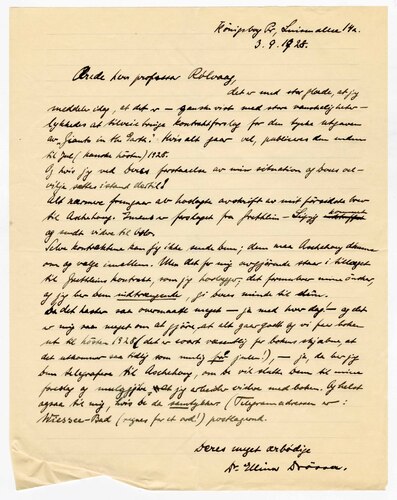 Königsberg Pr, Luisenallee 14a.
3. 9. 1928.
Ærede herr professor Rölvaag,
det er med stor glæde, at jeg
meddeler dem, at det er – ganske vist med store vanskeligheter –
lykkedes at tilveiebringe kontraktforslag for den tyske utgaven
av „Giants in the Earth". Hvis alt gaar vel, publiceres den inden
til Jul (kanske hösten) 1928.
Og hvis jeg ved Deres forstaaelse av min situation og Deres vel-
vilje sættes istand dertil!
Alt nærmere fremgaar av hoslagte avskrift av mit brev
til Aschehoug. Imens er forslaget fra
og sendt videre til Oslo.
Selve kontraktene kan jeg ikke sende dem; dem maa Aschehoug dömme
om og vælge imellem. Men det for mig avgjörende staar i tillægget
til kontrakt, som jeg hoslægger; det formulerer mine önsker,
og jeg ber Dem indtrængende, gi Deres minde til
Da det haster saa overmaade meget – ja med hver dag! og det
er mig saa meget om at gjöre, at alt gaar godt og vi faar boken
ut til hösten 1928 (det er svært væsentlig for bokens skjæbne, at
det utkommer saa tidlig som mulig før julen!), – ja, da ber jeg
Dem telegrafere til Aschehoug, om De vil stille Dem til mine
forslag og muliggjöre, at jeg arbeider videre med boken. Og helst
ogsaa til mig, hvis De samtykker (Telegramadressen er:
Wiessee-Bad (regnes for et ord!) postlagernd.
Deres meget ærbödige
Dr. Ellinor Drösser.